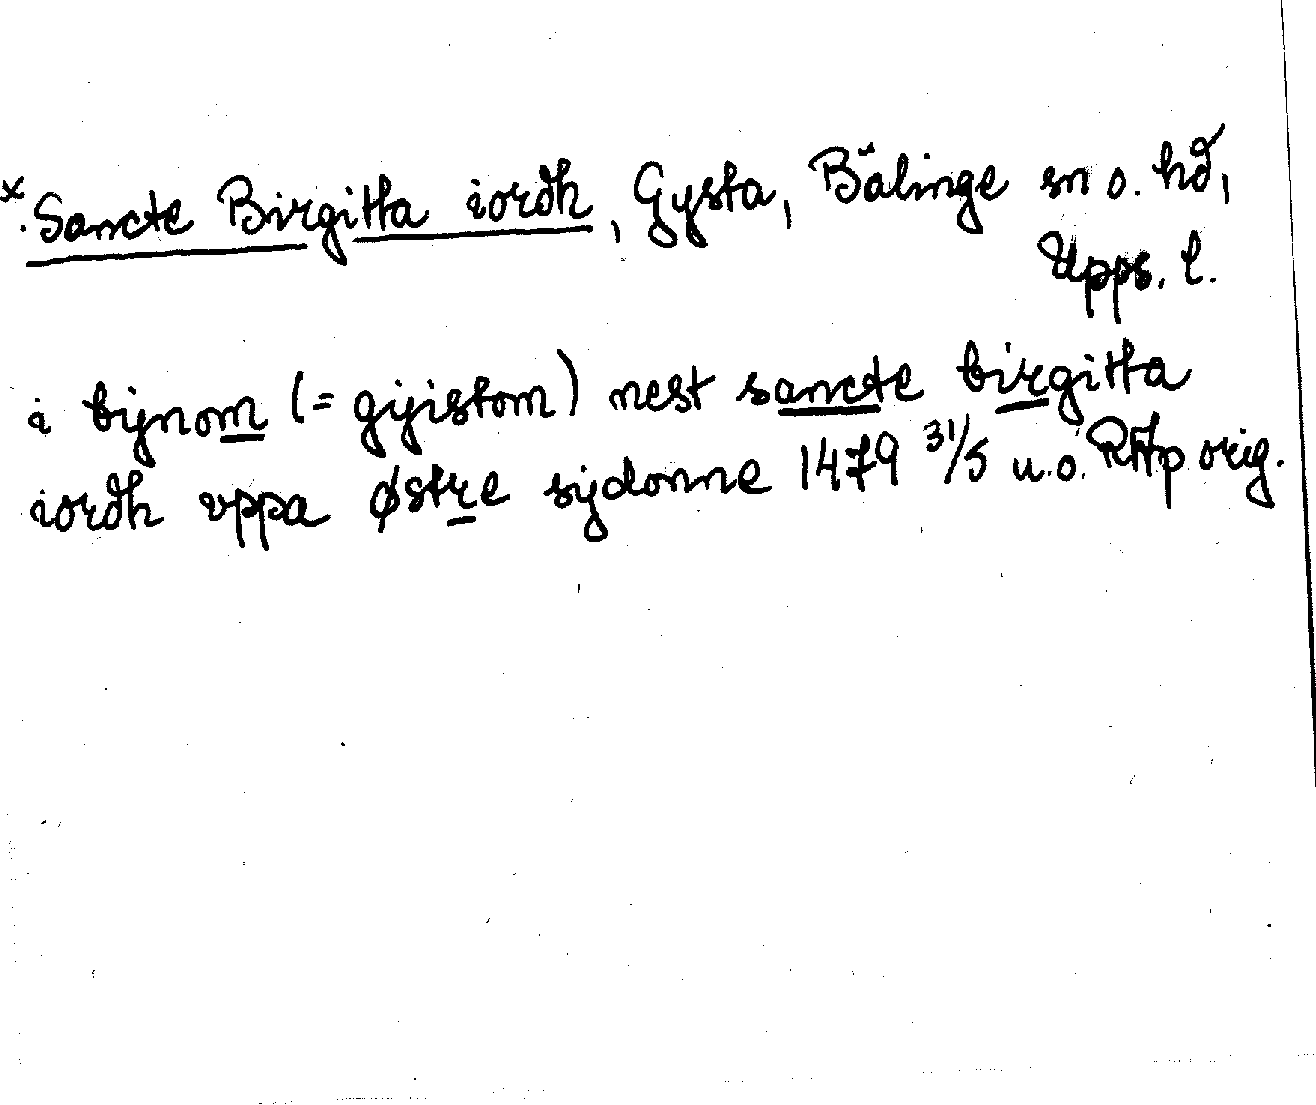 *. Sancte Birgitta iordh, Gysta, Bälinge sn o. hd,
Upps. l.
i bijnom (= gijistom) nest sancte birgitta
iordh vppa østre sijdonne 1479 31/5 u.o. RAp orig.